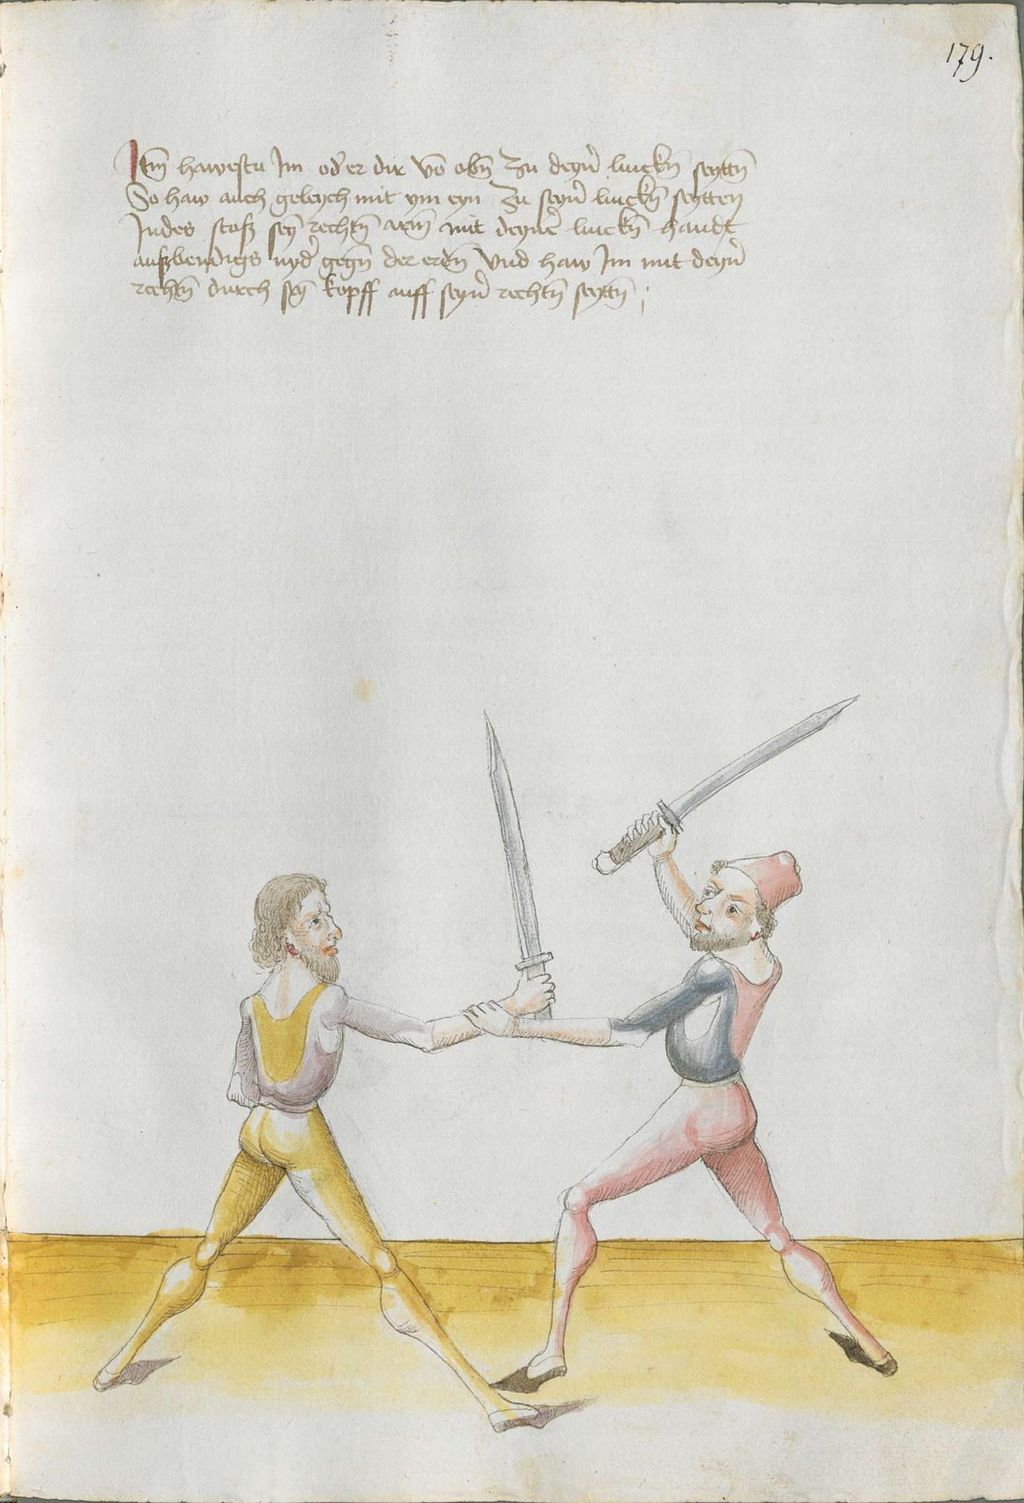 179.
Itm̄ hawestu Im od̕ er dir vō obn̄ zu deyn̕ linckn̄ seyttn̄
So haw auch geleych mit ym eyn zu seyn̕ linckn̄ seytten
Indes stoß seȳ rechtn̄ arm̄ mit deyner̕ linckn̄ handt
außwendigs nyd̕ gegn̄ der erdn̄ Vnd haw Im mit deyn̕
rechtn̄ durch seȳ kopff auff seyn̕ rechtn̄ seyttn̄ ;